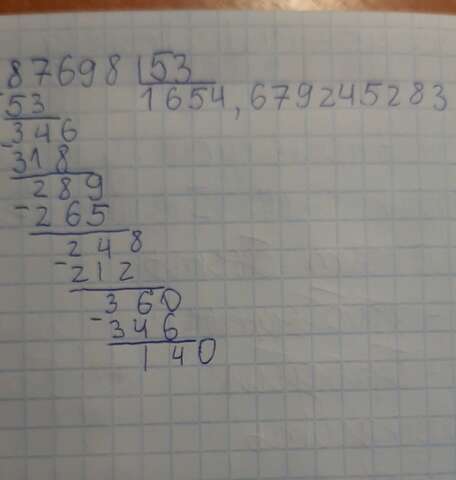 87698 53
53 1654,679245283
346
318
289
-265
248
-212
360
-346
140